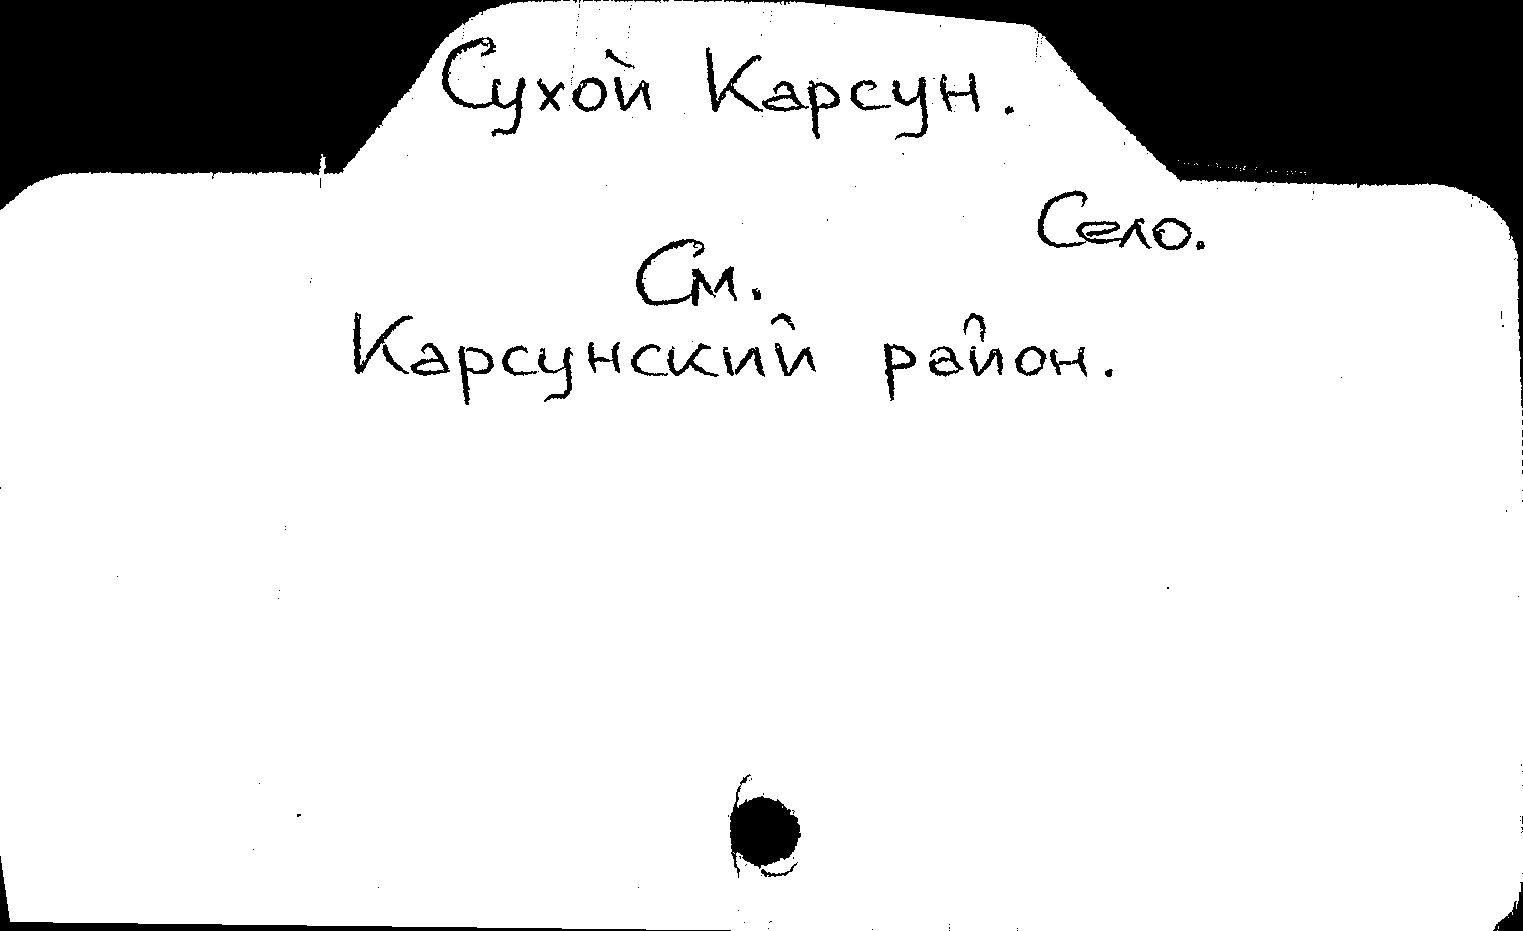 Сухой Карсун.
Село.
См.
Карсунский район.